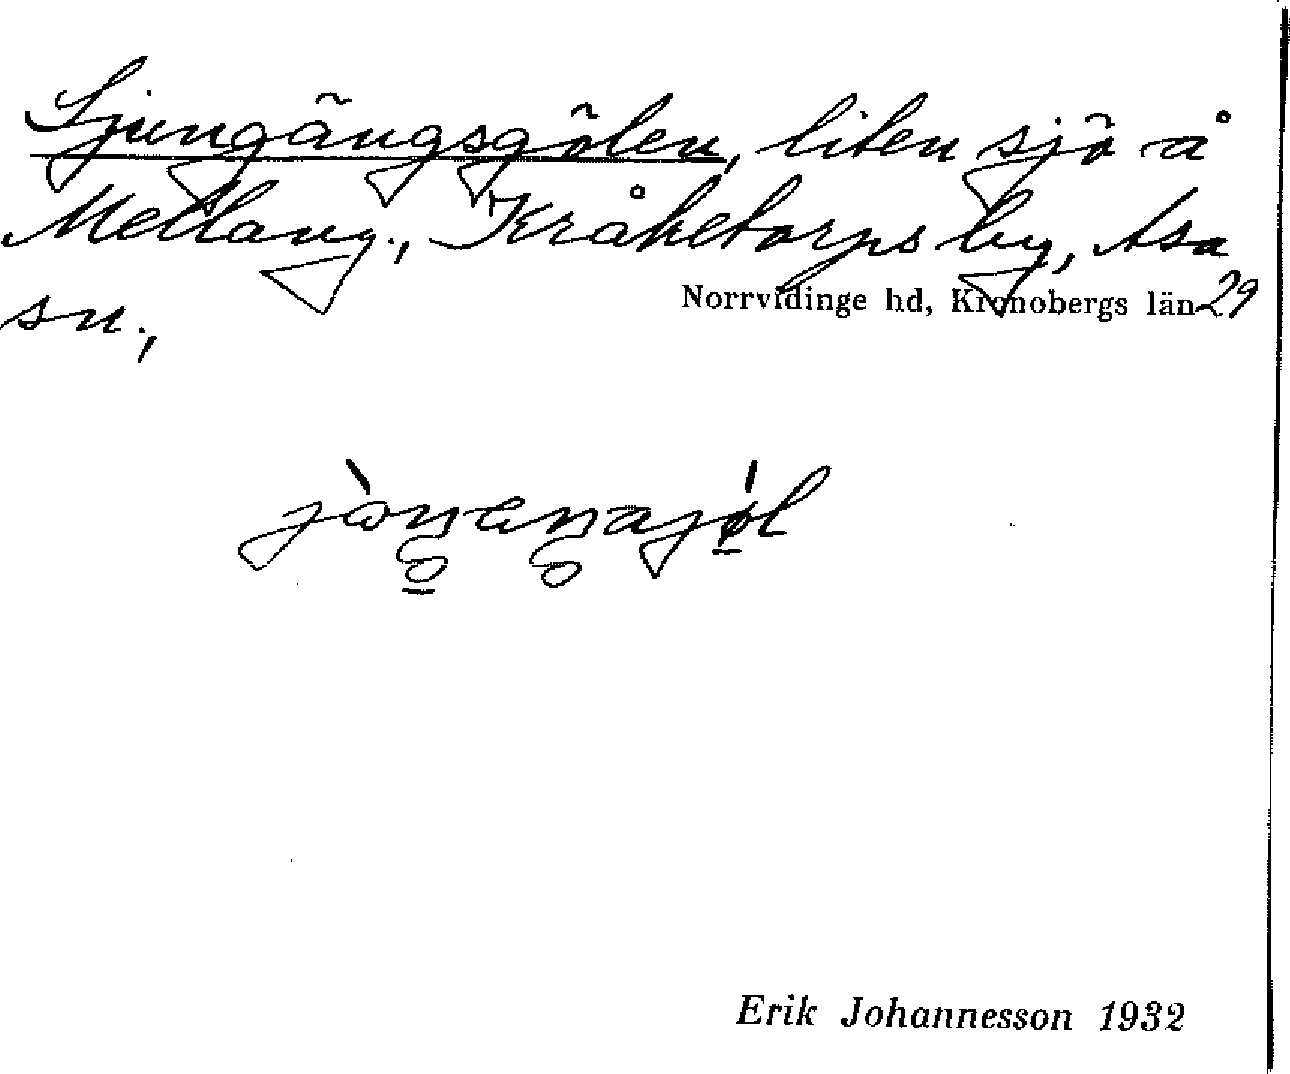 Ljungängsgölen, liten sjö å
Mellang., Kråketorps by, Asa
sn.,
Norrvidinge hd, Kronobergs län 29
Erik Johannesson 1932